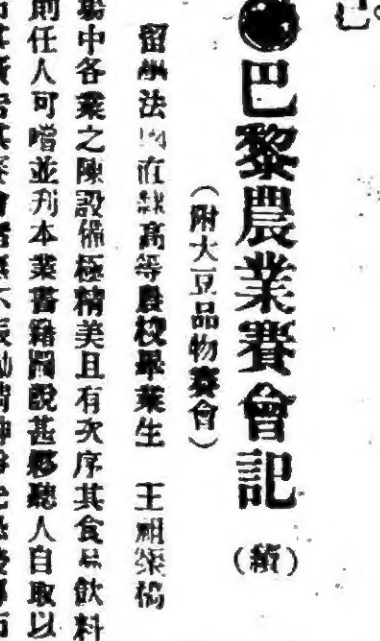 ●巴黎農業賽會記(續)
(附大豆品物賽會)
留學法國直隸高等農校畢業生 王祖渠稿
場中各業之陳設備極精美且有次序其食品飲料
則任人可嚐並刋本業書籍圖說甚夥聽人自取以